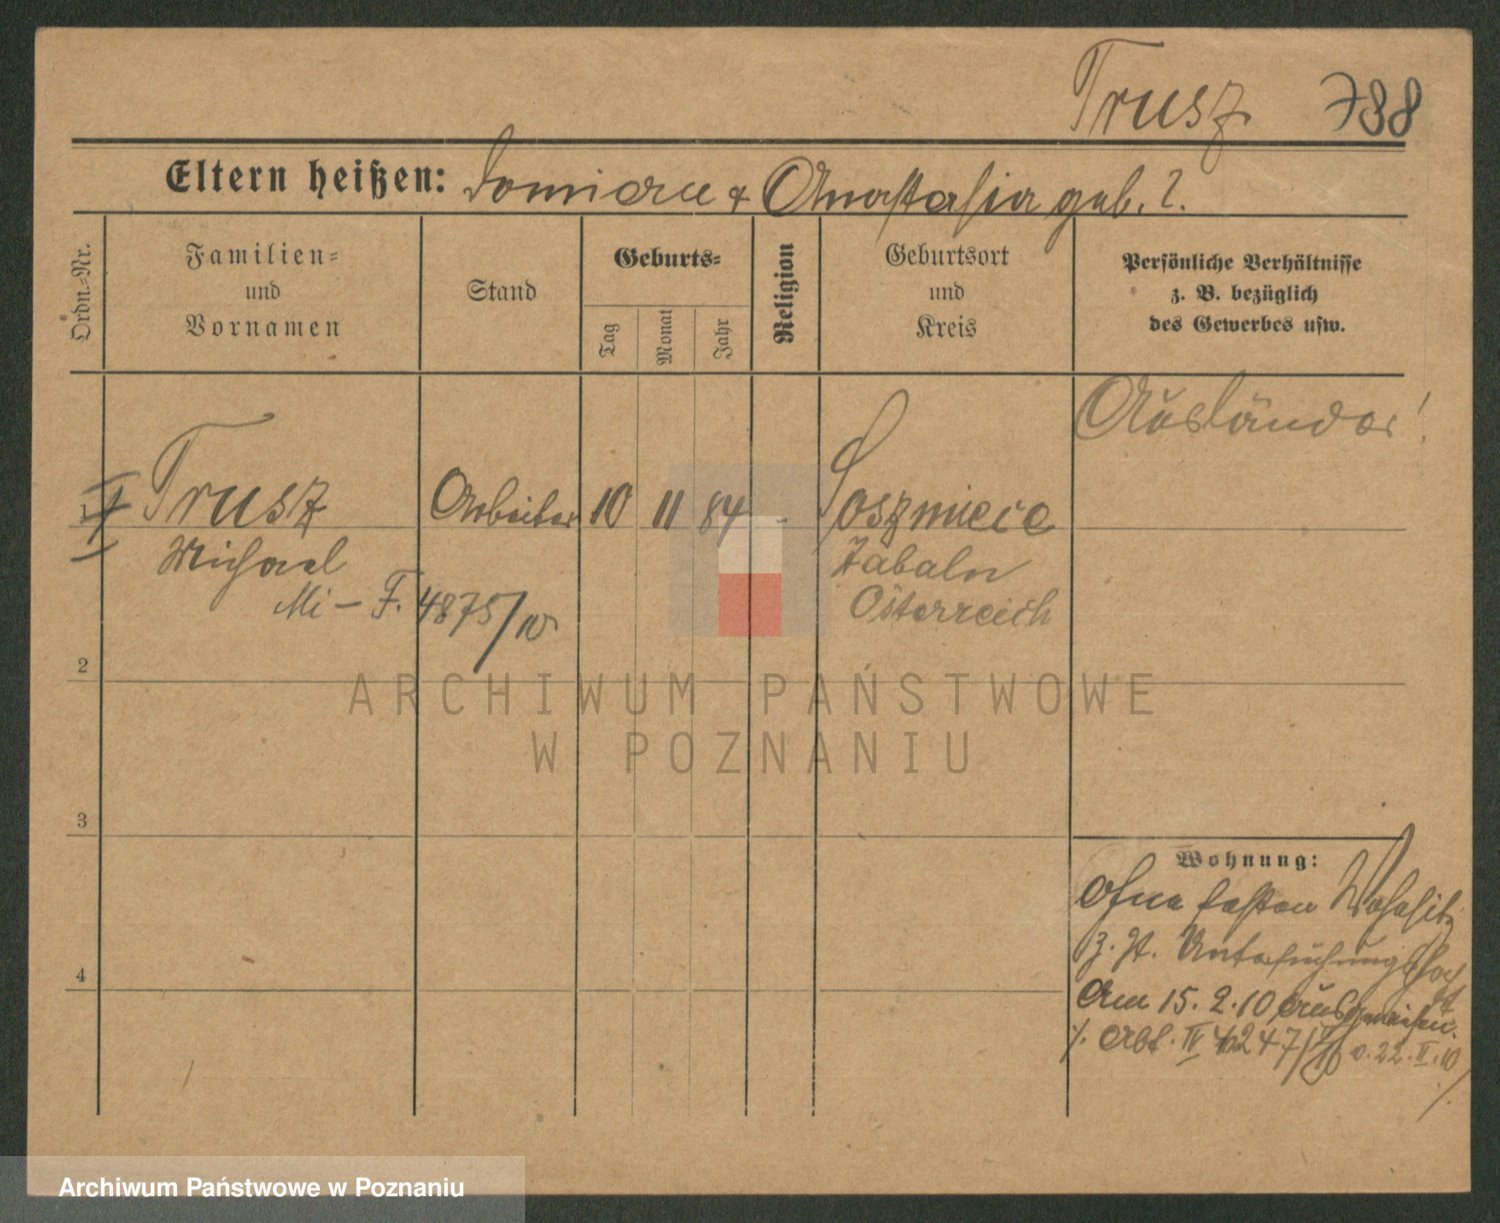 Trusz 788
Eltern heißen: & Anastasia geb. ?.
Ordn.-Nr.
Familien-
und
Vornamen
Stand
Geburts-
Tag
Monat
Jahr
Religion
Geburtsort
und
Kreis
Persönliche Verhältnisse
z. B. bezüglich
des Gewerbes usw.
Ausländer!
1 Trusz Arbeiter 10 11 84 -
Michael
Österreich
Mi - F. 4875/10
2
3
4
Wohnung:
Ohne festen Wohnsitz
z. Zt. Untersuchungshaft
Am 15. 2. 10 ausgewiesen.
Abt. IV v. 22. II. 10
ARCHIWUM PAŃSTWOWE
W POZNANIU
Archiwum Państwowe w Poznaniu